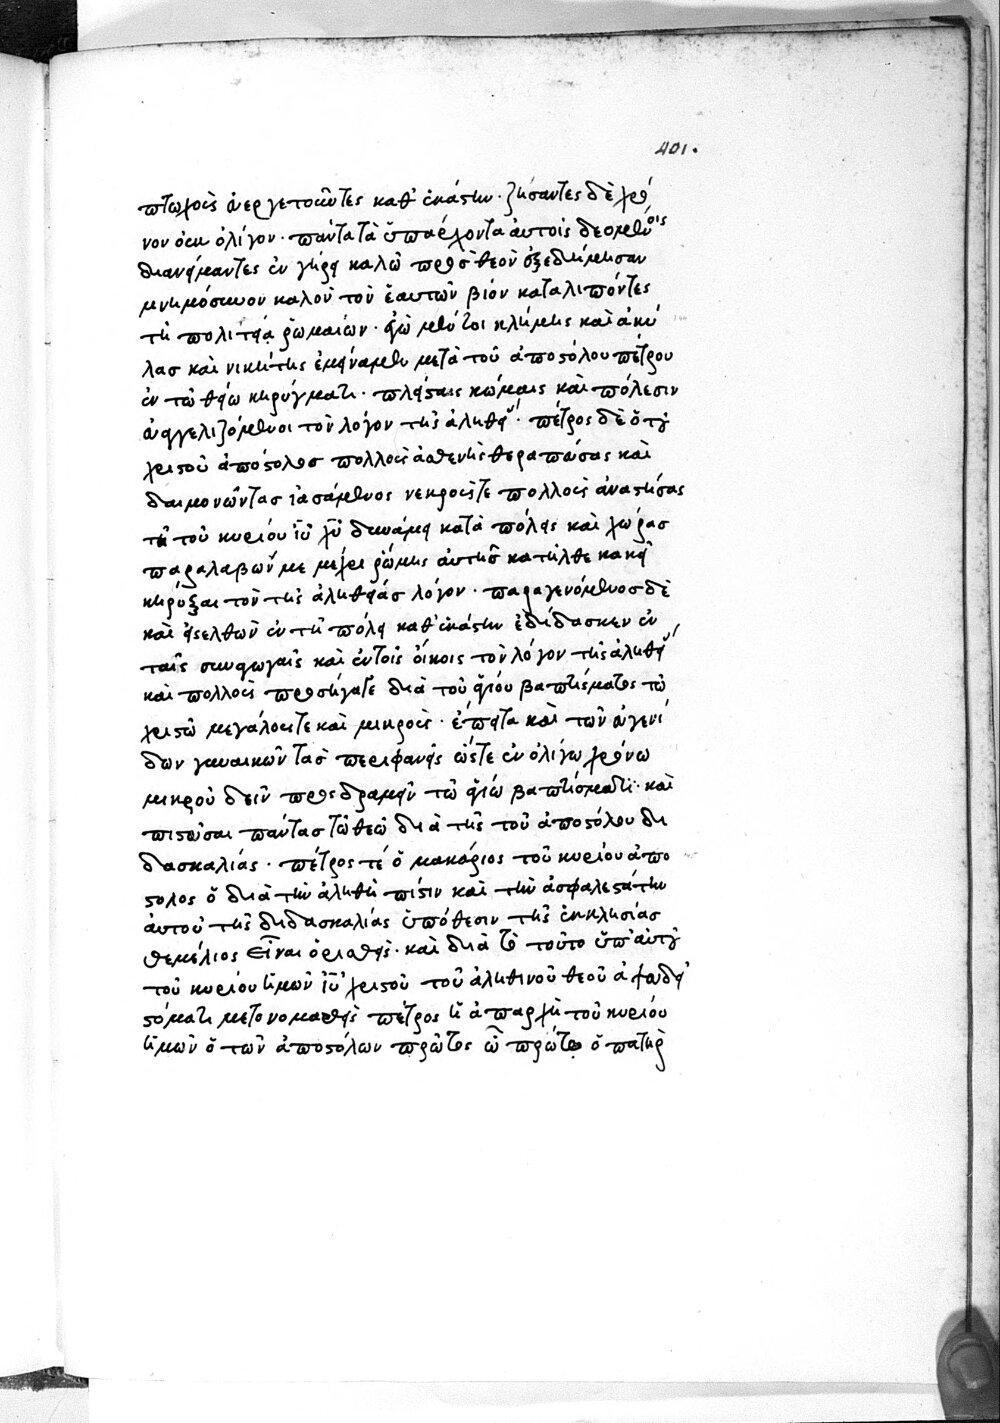 401.
πτωχοὺς ἐυεργετοῦντες καθ' ἑκάστην· ζήσαντες δὲ χρό
νον ὀυκ ὀλίγον· πάντα τὰ ὑπάρχοντα ἀυτοῖς δεομένοις
διανείμαντες ἐν γήρει καλῶ πρὸς θεὸν ἐξεδήμησαν
μνημόσυνον καλὸν τὸν ἑαυτῶν βίον καταλιπόντες
τῆ πολιτεία ῥωμαίων· ἐγὼ μέντοι κλήμης καὶ ἀκύ
λασ καὶ νικήτης ἐμείναμεν μετὰ τοῦ ἀποστόλου πέτρου
ἐν τῶ θείω κηρύγματι· πλείσταις κώμαις καὶ πόλεσιν
ἐυαγγελιζόμενοι τὸν λόγον τῆς ἀληθείας· πέτρος δὲ ὁ τοῦ
χριστοῦ ἀπόστολοσ πολλοὺς ἀσθενεῖς θεραπεύσας καὶ
δαιμονῶντασ ἰασάμενος νεκρούς τε πολλοὺς ἀναστήσας
τῆ τοῦ κυρίου ιυ χυ δυνάμει κατὰ πόλεις καὶ χώρασ
παραλαβών με μέχρι ῥώμης ἀυτῆσ κατῆλθε κακεῖ
κηρύξαι τὸν τῆς ἀληθείασ λόγον· παραγενόμενοσ δὲ
καὶ εἰσελθὼν ἐν τῆ πόλει καθ' ἑκάστην ἐδίδασκεν ἐν
ταῖς συναγωγαῖς καὶ ἐν τοῖς ὀίκοις τὸν λόγον τῆς ἀληθείας
καὶ πολλοὺς προσήγαγε διὰ τοῦ ἁγίου βαπτίσματος τῶ
χριστῶ μεγάλους τε καὶ μικρούς· ἔπειτα καὶ τῶν ἐυγενί
δων γυναικῶν τὰσ περιφανεῖς ὥστε ἐν ὀλίγω χρόνω
μικροῦ δεῖν προσδραμεῖν τῶ ἁγίω βαπτίσματι· καὶ
πιστεῦσαι πάντασ τῶ θεῶ διὰ τῆς τοῦ ἀποστόλου δι
δασκαλίας· πέτρος τε ὁ μακάριος τοῦ κυρίου ἀπό
στολος ὁ διὰ τὴν ἀληθῆ πίστιν καὶ τὴν ἀσφαλεστάτην
ἀυτοῦ τῆς διδασκαλίας ὑπόθεσιν τῆς ἐκκλησίασ
θεμέλιος εἶναι ὁρισθείς· καὶ διὰ τὸ τοῦτο ὑπ' ἀυτοῦ
τοῦ κυρίου ἡμῶν ιυ χριστοῦ τοῦ ἀληθινοῦ θεοῦ ἀψευδεῖ
στόματι μετονομασθεὶς πέτρος ἡ ἀπαρχὴ τοῦ κυρίου
ἡμῶν ὁ τῶν ἀποστόλων πρῶτος ὧ πρώτω ὁ πατὴρ